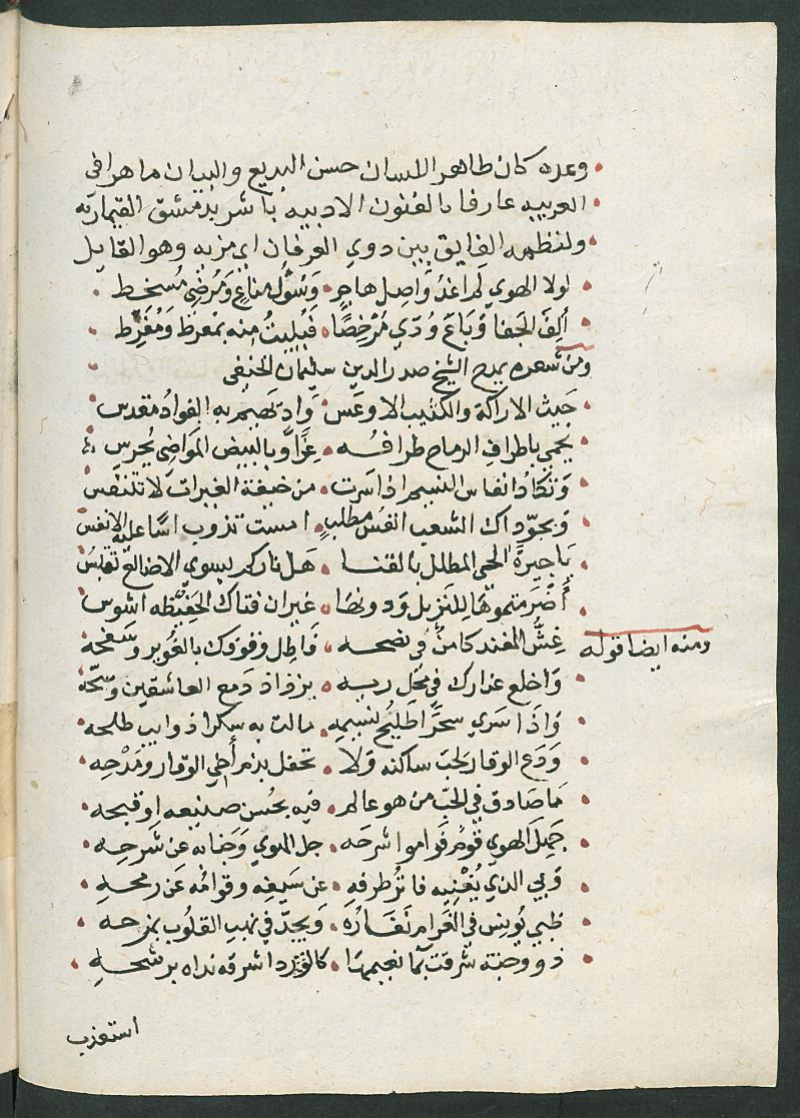 وعده كان طاهر اللسان حسن البديع والبيان ماهرا في
العربيه عارفا بالفنون الادبيه باشر بدمشق القيماريه
ولنظمه الفايق بين ذوي العرفان اي مزيه وهو القايل
لولا الهوي لم اغدُ وَاصِل هاجرٍ • وَسُؤُل مناعٍ وَمُرضِي مُسخط
أَلِفَ الجفا وَبَاعَ وُدّي مُرْخِصًا • فَبُلِيتُ منه بمفرط وَمُفَرِّط
ومن شعره يمدح الشيخ صدر الدين سليمان الحنفي
حَيث الاراكة والكثيب الاوعَس • وَاد يَهيم به الفوادُ مقدس
يُحمي باطرافِ الرماح طرافُه • عِزًّا وبالبيض المَوَاضِي يُحرس
وَتكَادُ انفاس النسيم اذا سَرت • من خيفة الغيرات لا تتنفس
وَبجوّ ذاك الشعب انفَسُ مطلبٍ • امست تذوب اسًا عليه الانفس
يَا جيرةَ الحي المظلل بالقنا • هَل ناركم بسوي الاضالع تقبسُ
أضْرَمتموهَا للنَزيل وَدونهَا • غيران فتاك الحفيظه اشوس
ومنه ايضا قوله
غِشُّ المفند كامنٌ في نصحه • فَاطِل وقوفك بالغُوير وسَفحه
وَاخلع عذارك في محَل ربه • برذاذ دَمع العاشقين وسَحّه
وَاذَا سَري سحَرًا طَليحُ نسيمِهِ • مالت به سكرا ذوايب طلحه
وَدَع الوقار لحبّ ساكنه وَلا • تحفل بذم أخِي الوقار ومَدْحِه
مَا صَادق في الحبّ من هو عالم • فيه بحُسن صنيعه او قبحه
جَهلَ الهوي قومٌ فراموا شرحَه • جل الهوي وَجنابه عن شَرحِه
وَبي الذي يُغْنِيه فاترُ طرفهِ • عن سَيفِهِ وقوامُه عَن رمحهِ
ظبي يُونس في الغَرام نفَارُهُ • وَيجدّ في نهبِ القلُوب بمزحه
ذو وجنة شرقت بمَا نعيمهَا • كالوَرد اشرقه نداه برشحهِ
استعذب